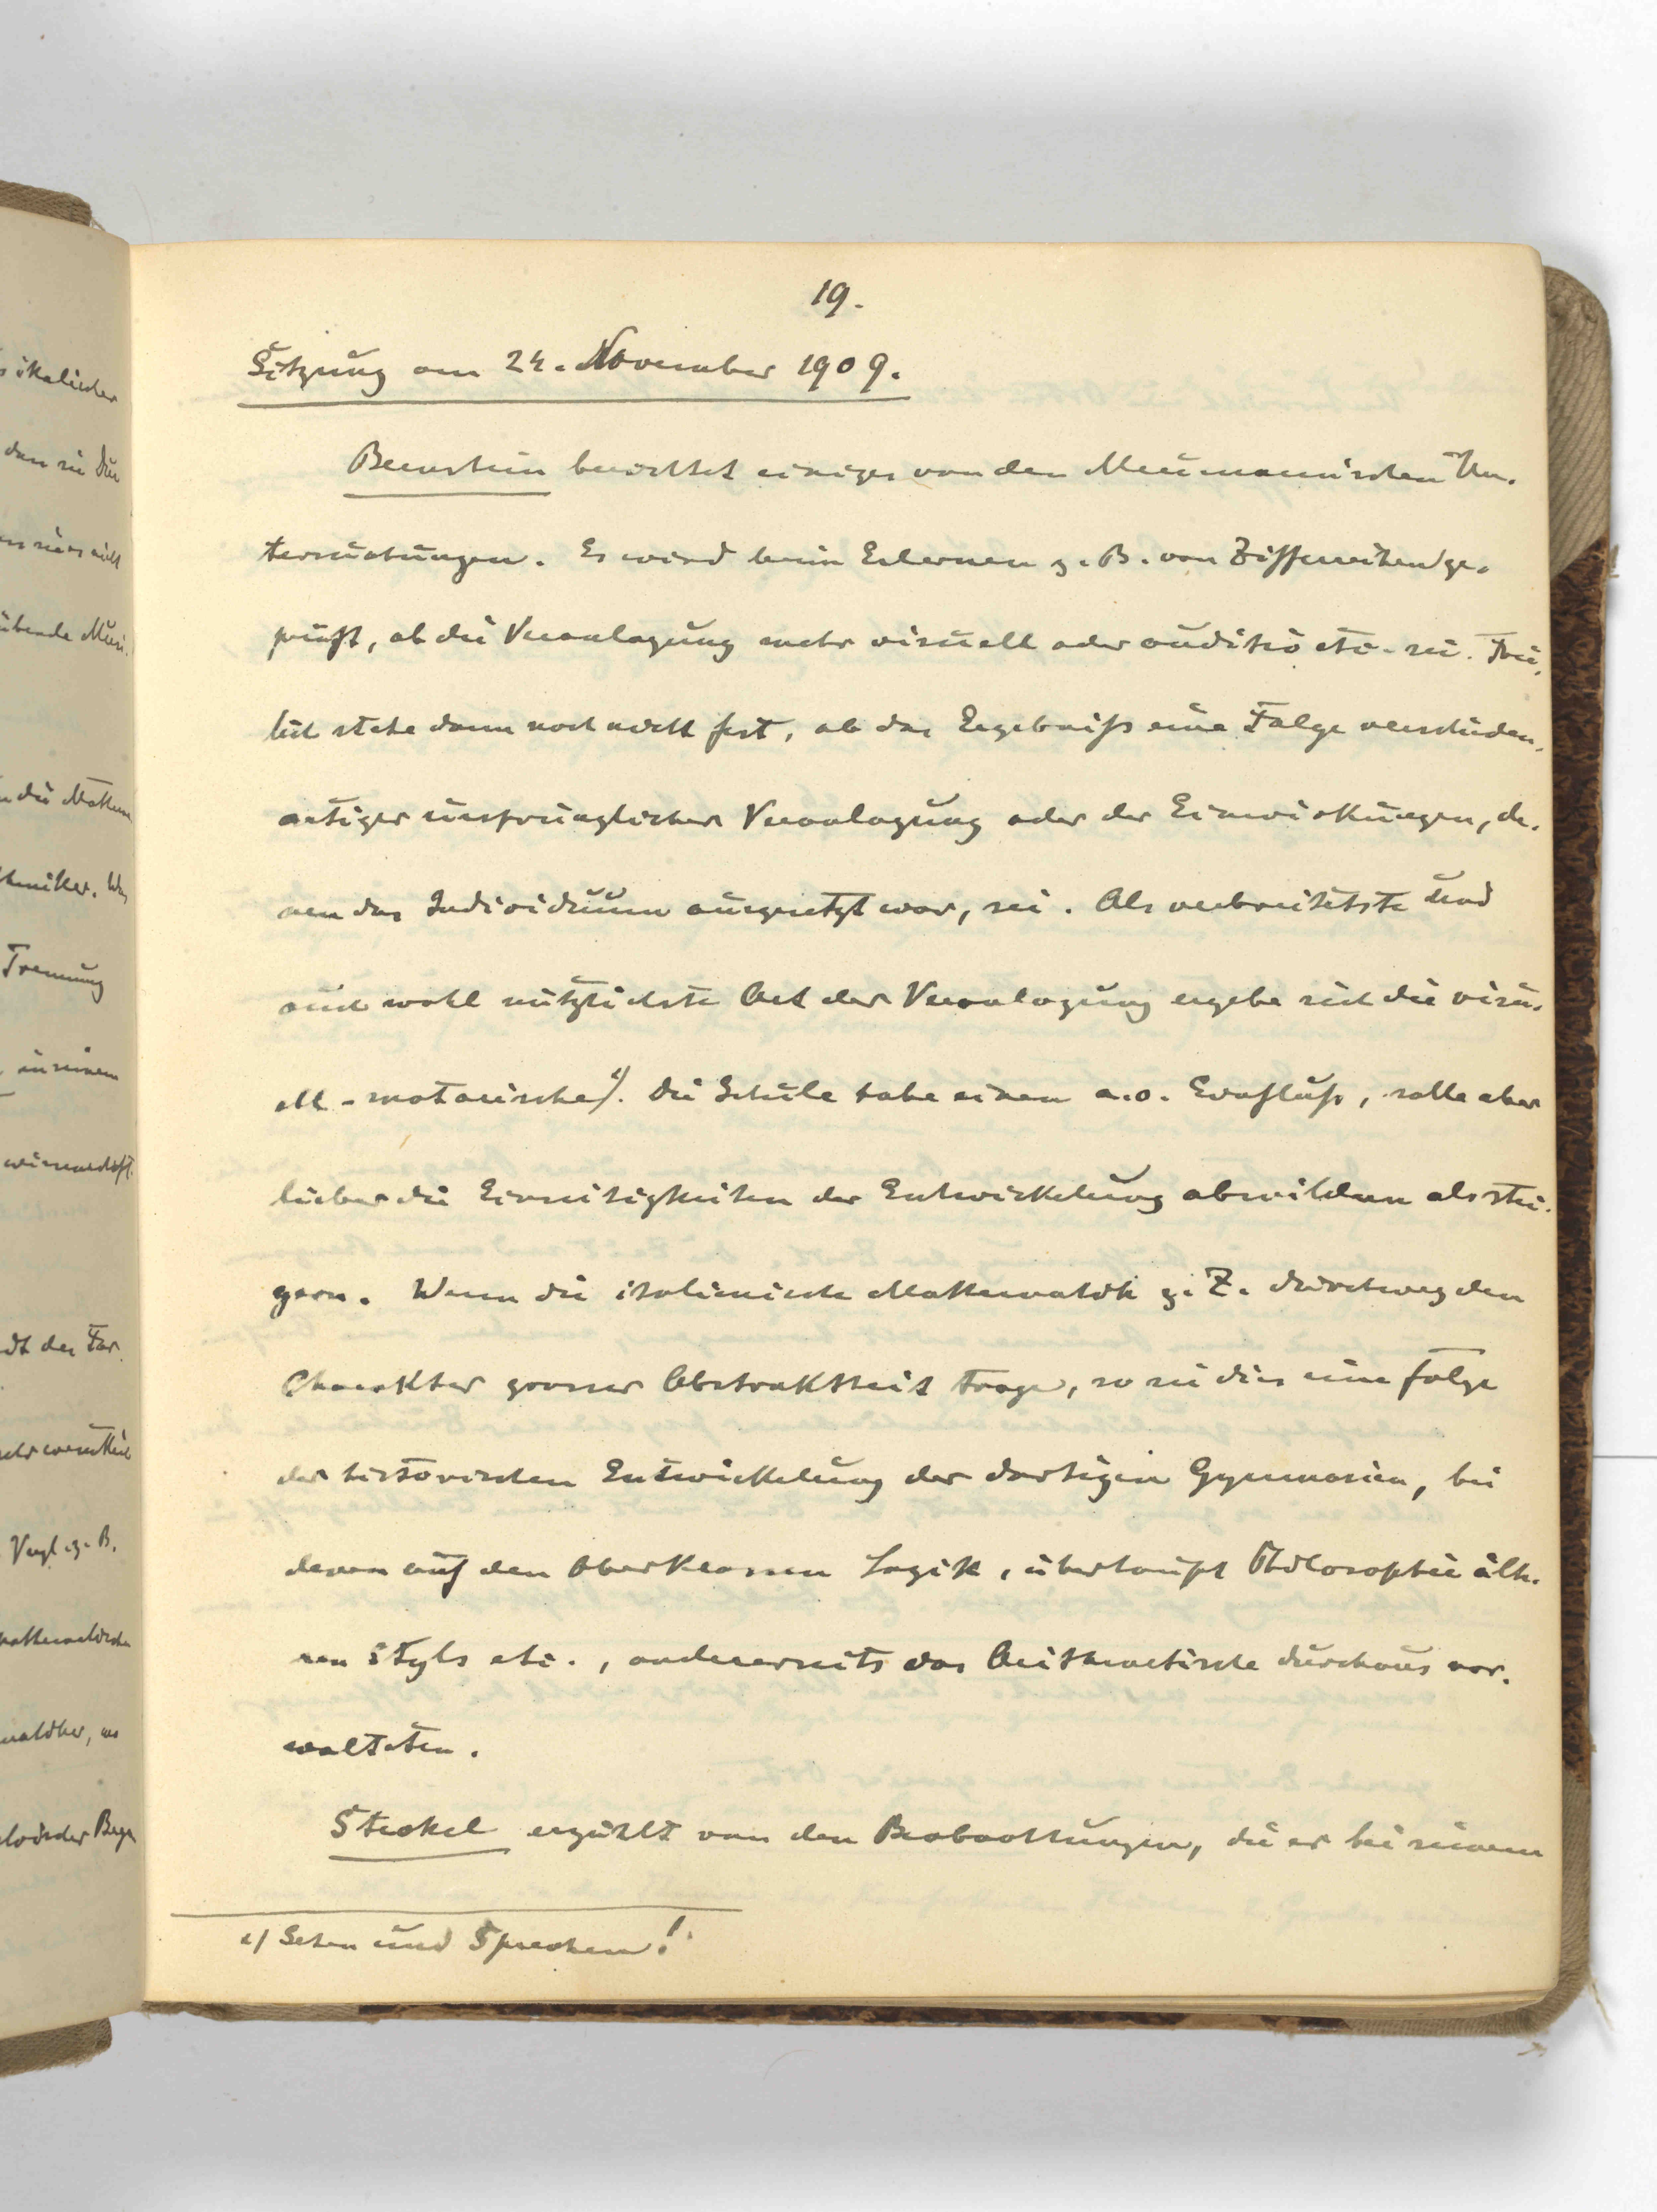 19.
Sitzung am 24. November 1909.
Bernstein berichtet einiges von den Meumannischen Un-
tersuchungen. Es wird beim Erlernen z. B. von Ziffernreihen ge-
prüft, ob die Veranlagung mehr visuell oder auditiv etc. sei. Frei-
lich stehe dann noch nicht fest, ob das Ergebniss eine Folge verschieden-
artiger ursprünglicher Veranlagung oder der Einwirkungen, de-
nen das Individuum ausgesetzt war, sei. Als verbreitetste und
auch wohl nützlichste Art der Veranlagung ergebe sich die visu-
ell-motorische 1). Die Schule habe einen a.o. Einfluss, solle aber
lieber die Einseitigkeiten der Entwickelung abmildern als stei-
gern. Wenn die italienische Mathematik z. Z. durchweg den
Charakter grosser Abstraktheit trage, so sei dies eine Folge
der historischen Entwickelung der dortigen Gymnasien, bei
denen auf den Oberklassen Logik, überhaupt Philosophie älte-
ren Styls etc., andererseits das Arithmetische durchaus vor-
walteten.
Steckel erzählt von den Beobachtungen, die er bei seinem
1) Sehen und Sprechen!